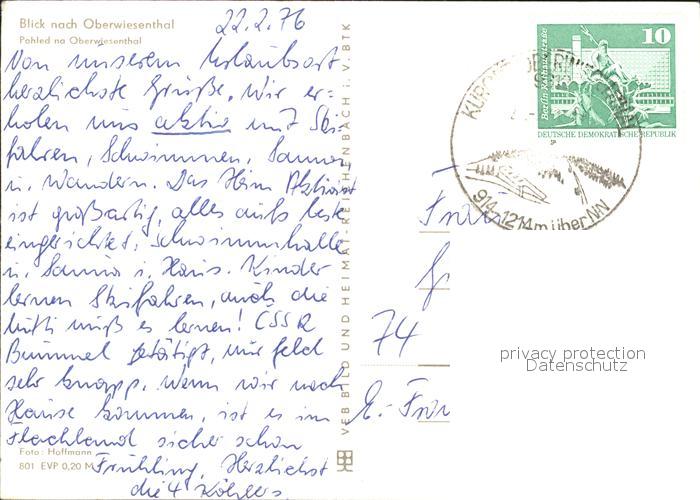 Blick nach Oberwiesenthal
Pohled na Oberwiesenthal
22.2.76
Von unserem Urlaubsort
herzlichste Grüße. Wir er-
holen uns aktiv mit Ski-
fahren, Schwimmen, Sauna
u. Wandern. Das Heim Aktivist
ist großartig, alles aufs beste
eingerichtet, Schwimmhalle
u. Sauna i. Haus. Kinder
lernen Skifahren, auch die
Mutti muß es lernen! CSSR
Bummel getätigt, nur Geld
sehr knapp. Wenn wir nach
Hause kommen, ist es im
Flachland sicher schon
Frühling. Herzlichst
die 4 Köhlers.
Foto: Hoffmann
801 EVP 0,20 M
VEB BILD UND HEIMAT REICHENBACH i. V. BTK
10
Berlin, Rathausstraße
DEUTSCHE DEMOKRATISCHE REPUBLIK
KURORT OBERWIESENTHAL
914-1214m über NN
74
privacy protection
Datenschutz